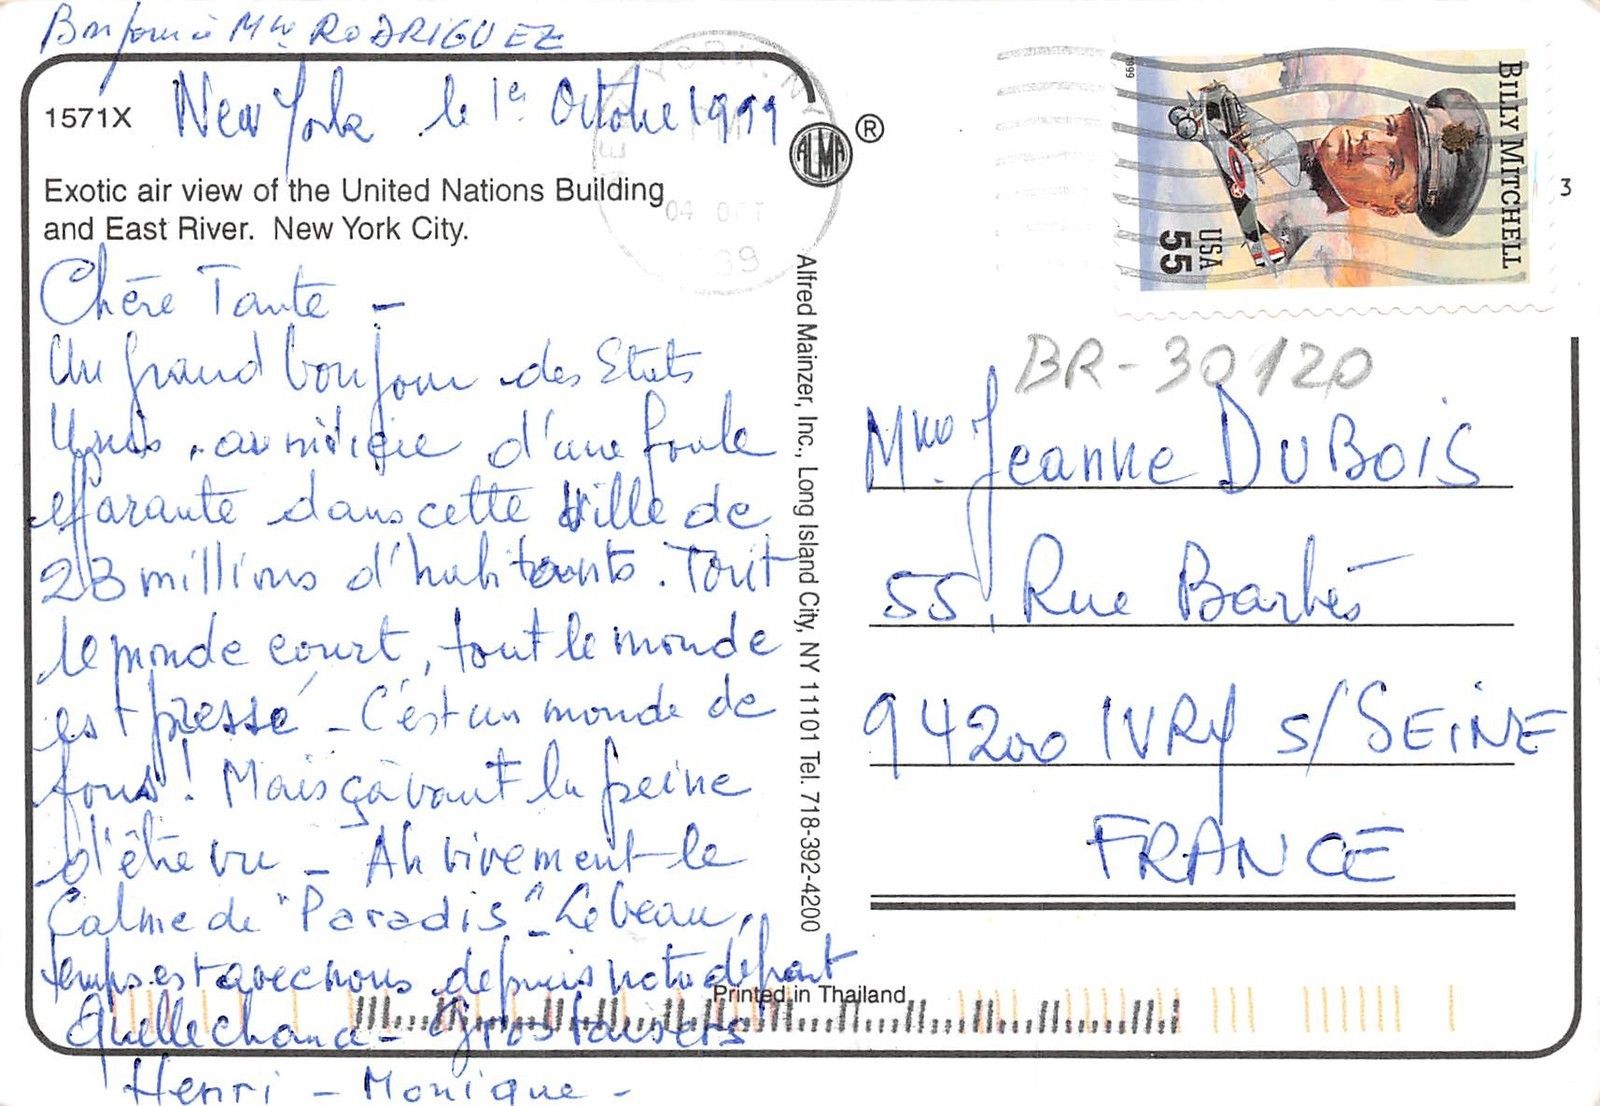 Bonjour à Mme RODRIGUEZ
1571X
New York le 1er Octobre 1999
Exotic air view of the United Nations Building
and East River. New York City.
Chère Tante -
Un grand bonjour des Etats
Unis, au milieu d'une foule
effarante dans cette ville de
23 millions d'habitants. Tout
le monde court, tout le monde
est pressé - C'est un monde de
fous! Mais ça vaut la peine
d'être vu - Ah vivement le
Calme de "Paradis" - Le beau
temps est avec nous depuis notre départ
Quelle chance - Gros baisers
Henri - Monique -
ALMA ®
Alfred Mainzer, Inc., Long Island City, NY 11101 Tel. 718-392-4200
Printed in Thailand
NEW YORK, NY
04 OCT
1999
1999
BILLY MITCHELL
USA
55
3
BR-30120
Mme. Jeanne DUBOIS
55, Rue Barbès
94200 IVRY s/SEINE
FRANCE